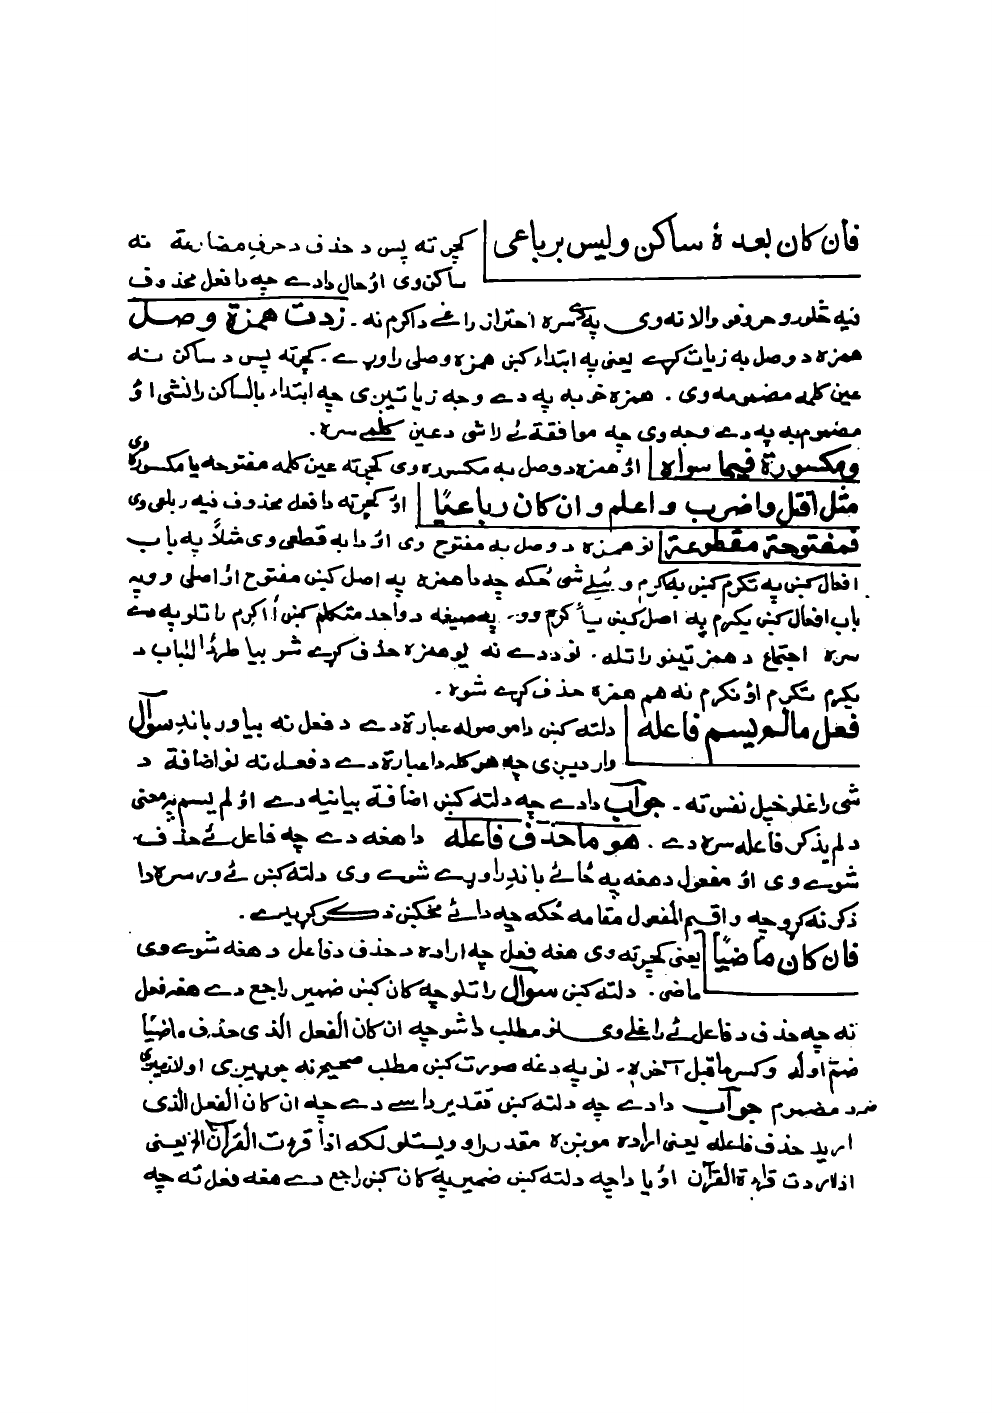 فان کان بعدهٔ ساکن ولیس برباعی | کچرته پس د حذف د حرف مضارعة نه
ساکن وی اؤ حال دا دے چه دا فعل محذوف
فیه څلورو حروفو والا نه وی په سره احتراز راغے د اکرم نه ۔ زدت همزة وصل
همزه د وصل به زیات کړے یعنی په ابتداء کښ همزه وصلی راوړے ۔ کچرته پس د ساکن نه
عین کلمه مضمومه وی ۔ همزه خو به په دے وجه زیاتیږی چه ابتداء بالساکن رانشی اؤ
مضموم به په دے وجه وی چه موافقة ئے راشی د عین کلمے سره ۔
ومکسورة فیما سواه | اؤ همزه د وصل به مکسوره وی کچرته عین کلمه مفتوحه یا مکسوره وی
مثل اقتل واضرب واعلم وان کان رباعیًا | اؤ کچرته دا فعل محذوف فیه رباعی وی
فمفتوحة مقطوعة | نو همزه د وصل به مفتوح وی اؤ دا به قطعی وی مثلاً په باب
افعال کښ په تکرم کښ به اکرم وئیلے شی ځکه چه دا همزه په اصل کښ مفتوح اؤ اصلی وو په
باب افعال کښ یکرم په اصل کښ یأکرم وو ۔ په صیغه د واحد متکلم کښ أأکرم راتلو په دے
سره اجتماع د همزتینو راتله ۔ نو د دے نه یو همزه حذف کړے شو بیا طردًا للباب د
یکرم تکرم اؤ نکرم نه هم همزه حذف کړے شوه ۔
فعل مالم یسم فاعله | دلته کښ دا ما موصوله عبارة دے د فعل نه بیا ور باندِ سوال
واردیږی چه هر کله دا عبارة دے د فعل نه نو اضافة د
شی راغلو خپل نفس ته ۔ جواب دا دے چه دلته کښ اضافة بیانیه دے اؤ لم یسم په معنی
د لم یذکر فاعله سره دے ۔ هو ما حذف فاعله دا هغه دے چه فاعل ئے حذف
شوے وی اؤ مفعول د هغه په ځائے باندِ راوړے شوے وی دلته کښ ئے ورسره دا
ذکر نه کړو چه واقیم المفعول مقامه ځکه چه دا ئے مخکښ ذکر کړیدے ۔
فان کان ماضیًا | یعنی کچرته وی هغه فعل چه اراده د حذف د فاعل د هغه شوے وی
ماضی ۔ دلته کښ سوال راتلو چه کان کښ ضمیر راجع دے هغه فعل
ته چه حذف د فاعل ئے راغلے وی نو مطلب دا شو چه ان کان الفعل الذی حذف ماضیًا
ضم اوله وکسر ماقبل آخره ۔ نو په دغه صورت کښ مطلب صحیح نه جوړیږی
ضرد مضموم جواب دا دے چه دلته کښ تقدیر داسے دے چه ان کان الفعل الذی
ارید حذف فاعله یعنی اراده مونږه مقدر راوویستلو لکه اذا قرءت القرآن الخ یعنی
اذا اردت قراءة القرآن اؤ یا دا چه دلته کښ ضمیر په کان کښ راجع دے هغه فعل ته چه